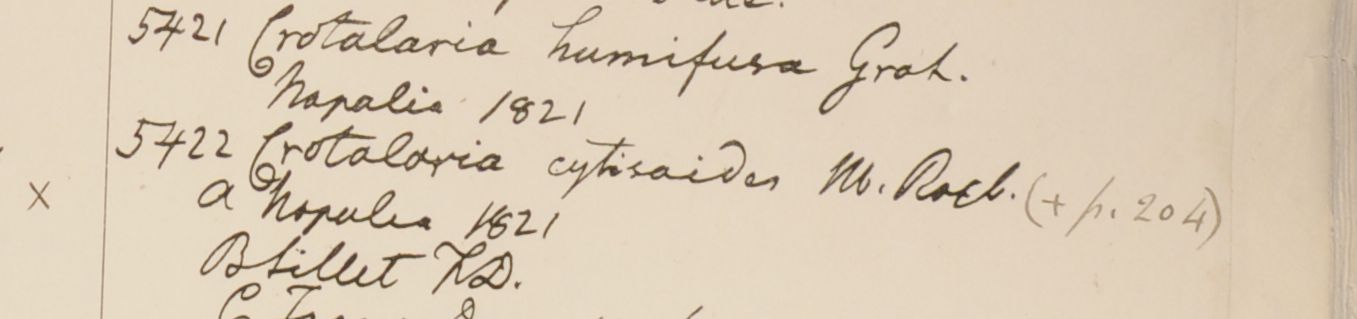 5421 Crotalaria humifusa Grah.
Napalia 1821
5422 Crotalaria cytisoides M. Roxb. (+ p. 204)
X a Napulia 1821
B Sillet H.D.